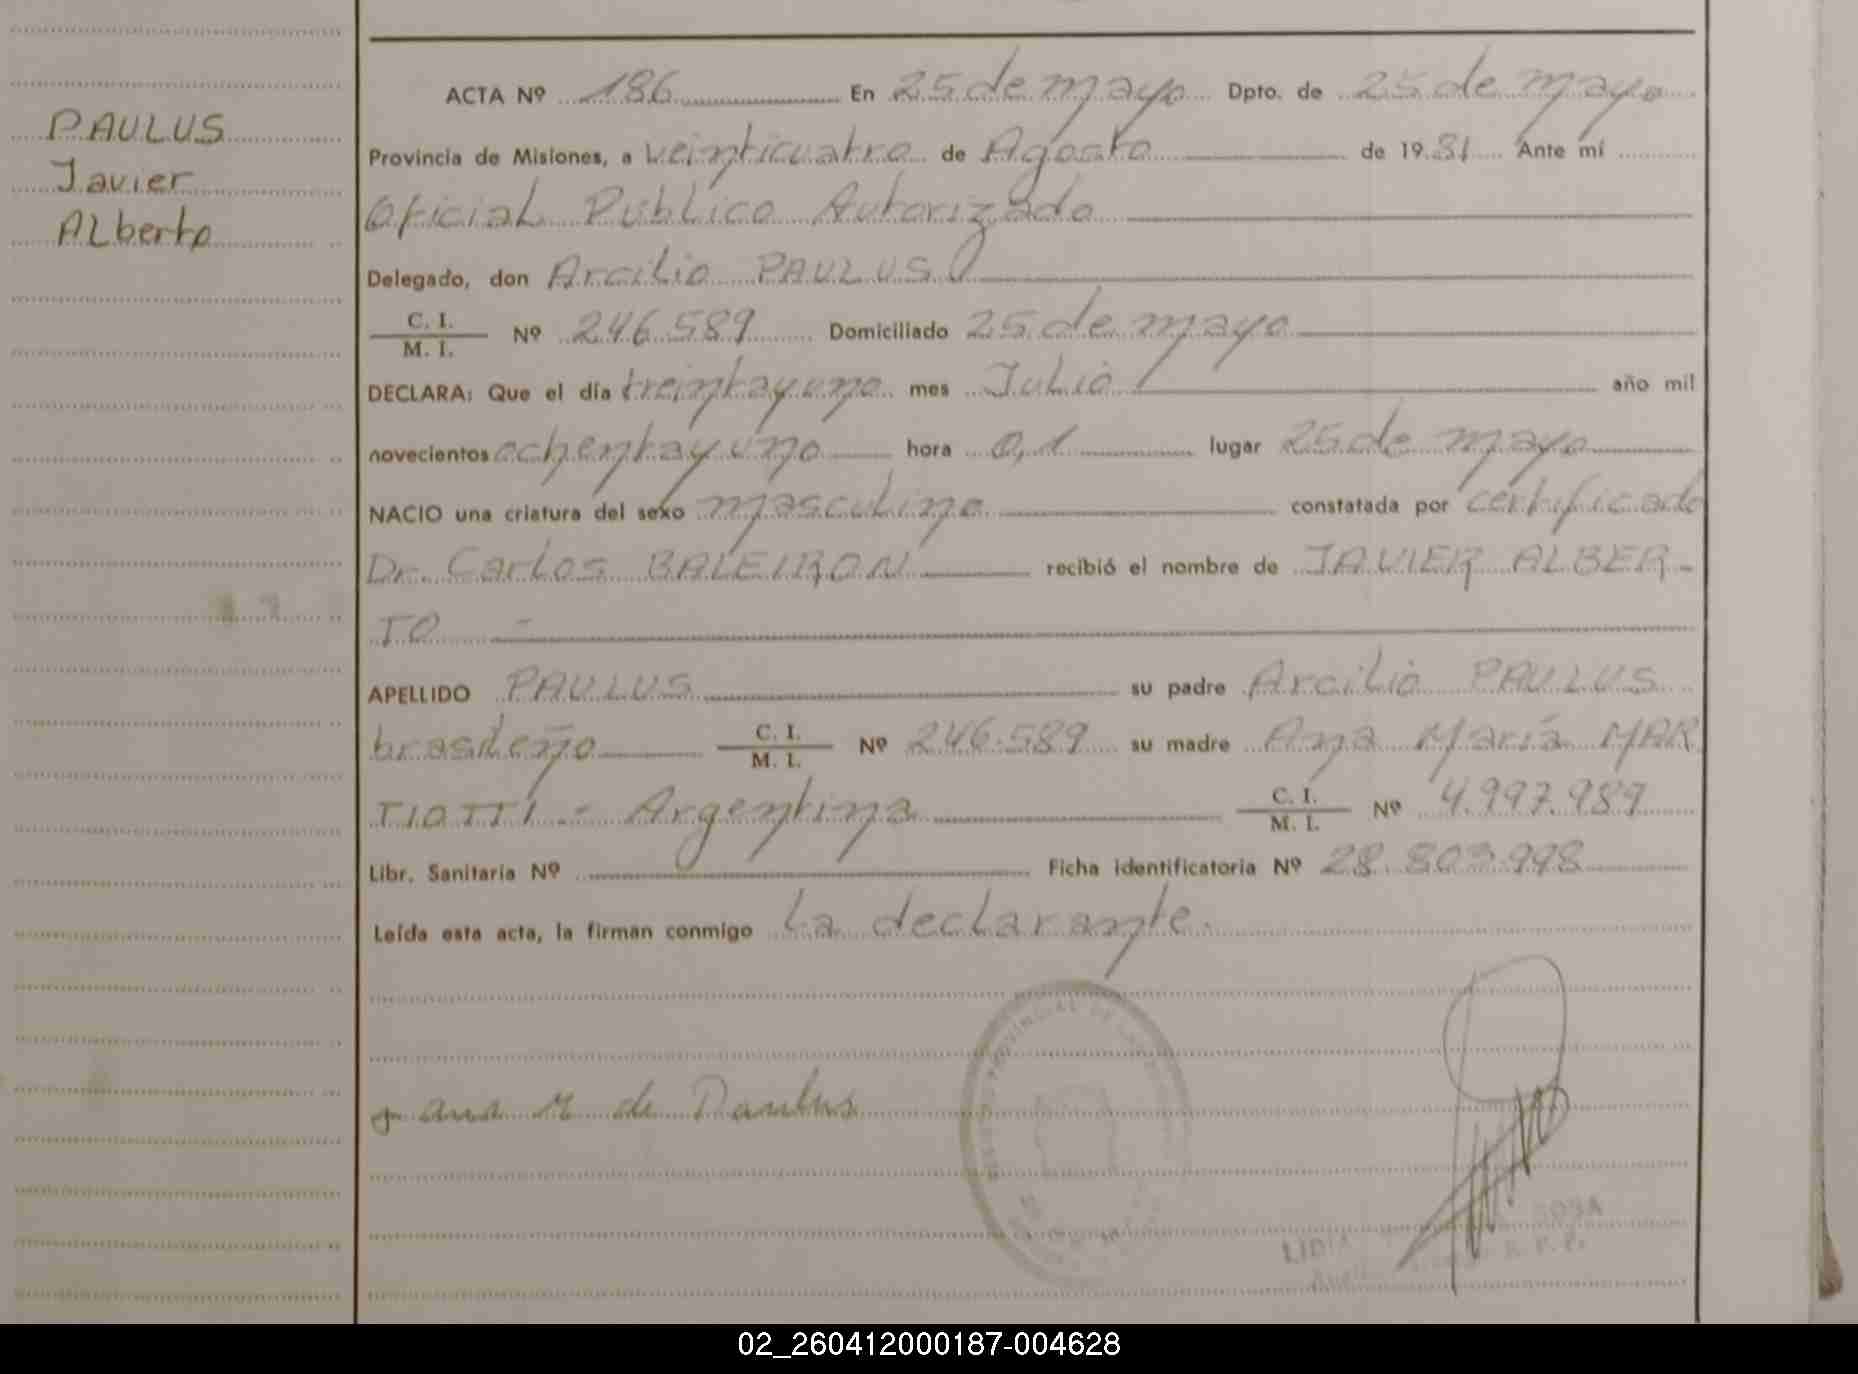 PAULUS
Javier
ALberto
ACTA Nº 186 En 25 de mayo Dpto. de 25 de mayo
Provincia de Misiones, a veinticuatro de Agosto de 1981 Ante mí
Oficial Publico Autorizado
Delegado, don Arcilio PAULUS
C. I.
M. I. Nº 246.589 Domiciliado 25 de mayo
DECLARA: Que el día treintayuno mes Julio año mil
novecientos ochentayuno hora 0,1 lugar 25 de mayo
NACIO una criatura del sexo masculino constatada por certificado
Dr. Carlos BALEIRON recibió el nombre de JAVIER ALBER-
TO -
APELLIDO PAULUS su padre Arcilio PAULUS
brasileño C. I. M. I. Nº 246.589 su madre Ana María MAR
TIOTTI - Argentina C. I. M. I. Nº 4.997.989
Libr. Sanitaria Nº Ficha identificatoria Nº 28.803.998
Leída esta acta, la firman conmigo la declarante.
PROVINCIAL DE
ana M de Paulus
LIDIA SOSA
02_260412000187-004628